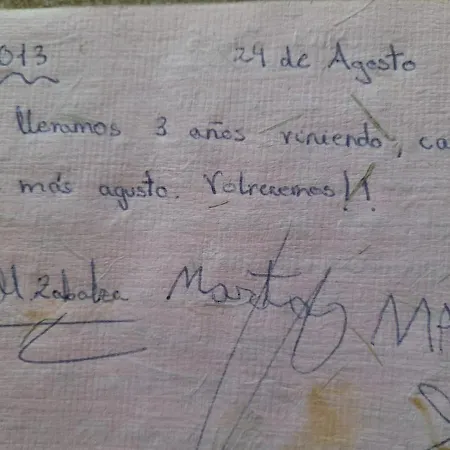 013 24 de Agosto
lleramos 3 años viniendo, ca
más agusto. Volreremos!!
M Zabalza Marta MA